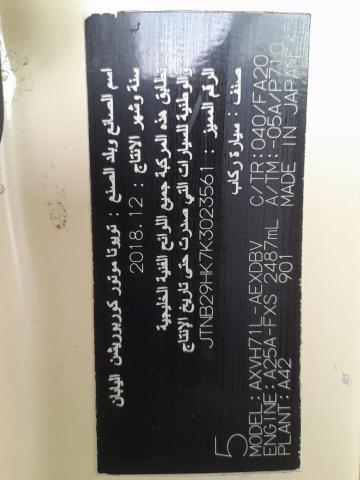 اسم الصانع وبلد الصنع : تويوتا موتور كوربوريشن اليابان
سنة وشهر الإنتاج : 2018.12
تطابق هذه المركبة جميع اللوائح الفنية الخليجية
والوطنية للسيارات التي صدرت حتى تاريخ الإنتاج
الرقم المميز : JTNB29HK7K3023561
صنف : سيارة ركاب
5
MODEL:AXVH71L-AEXDBV C/TR:040/FA20
ENGINE:A25A-FXS 2487mL A/TM:-05A/P710
PLANT:A42 901 MADE IN JAPAN